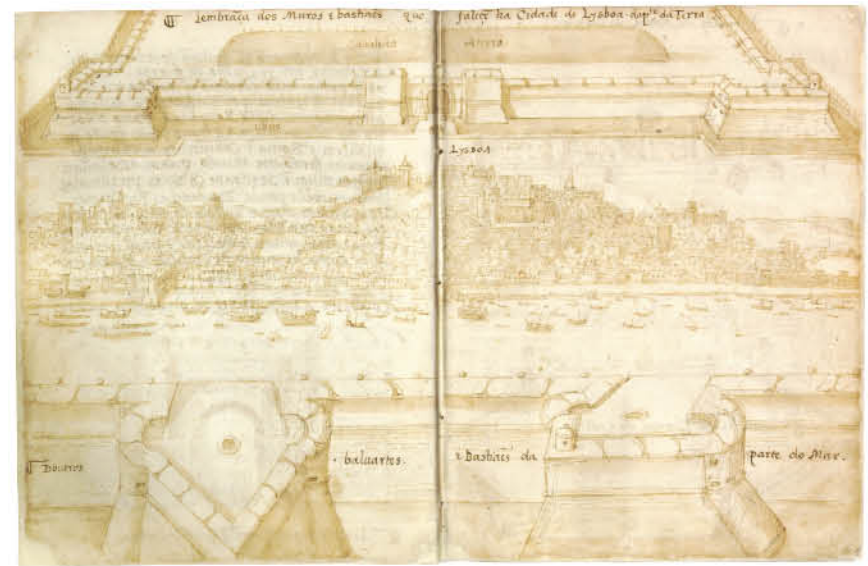 Lembrãça dos Muros & bastiães que faleçẽ ha Cidade de Lysboa da pte da Terra
LYSBOA
Doutros baluartes. & Bastiães da parte do Mar.